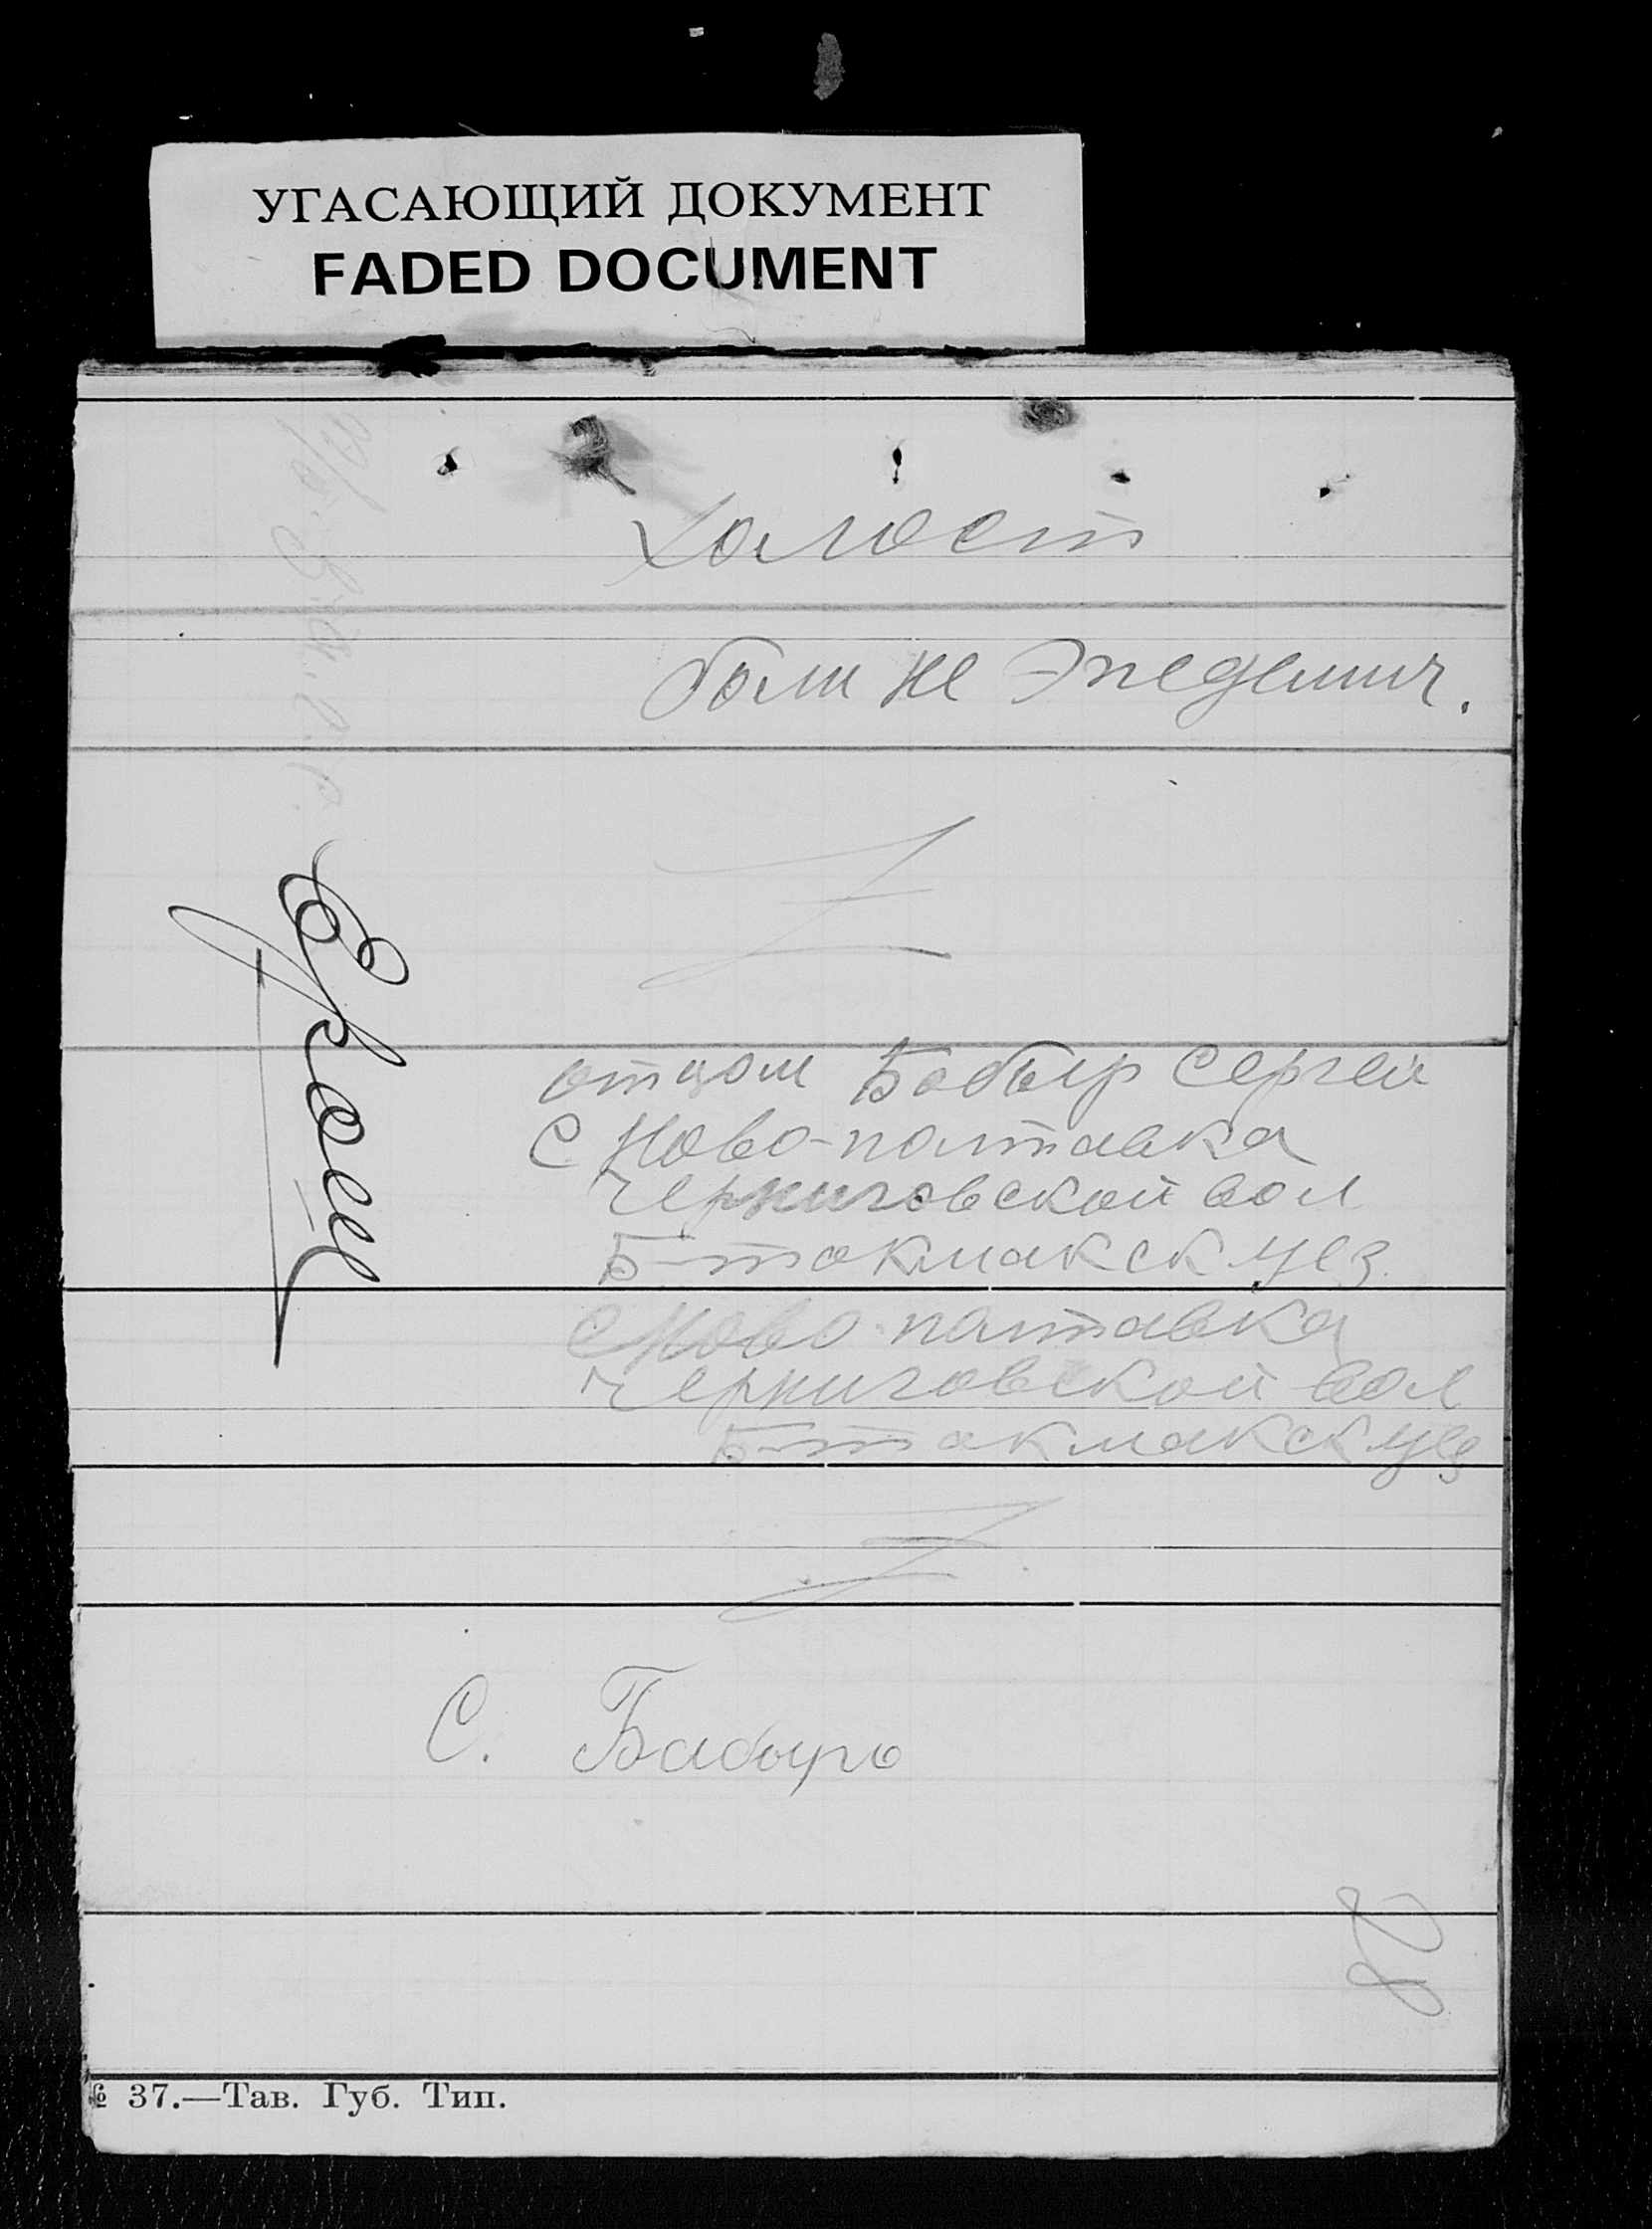 УГАСАЮЩИЙ ДОКУМЕНТ
FADED DOCUMENT
Холост
боли не Эпедемич.
отцом Бобыр Сергей
С Ново-полтавка
Черниговской вол
Б-токмакск уез.
С Ново полтавка
Черниговской вол
Б-токмакск уез
С. Бабырь
28
№ 37.—Тав. Губ. Тип.